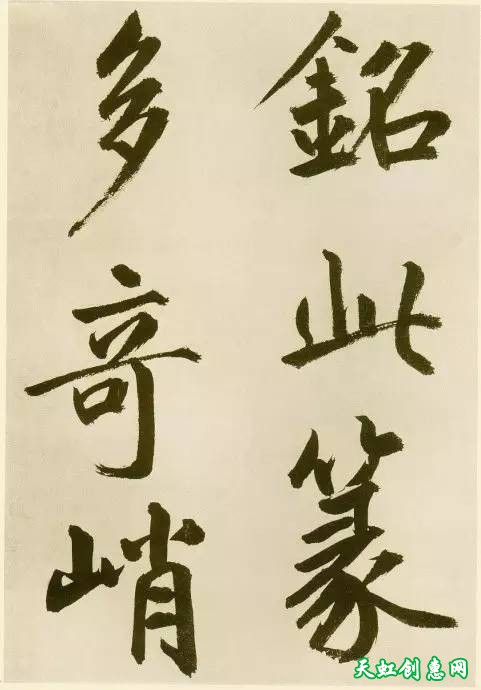 銘此篆
多奇峭
天虹创惠网